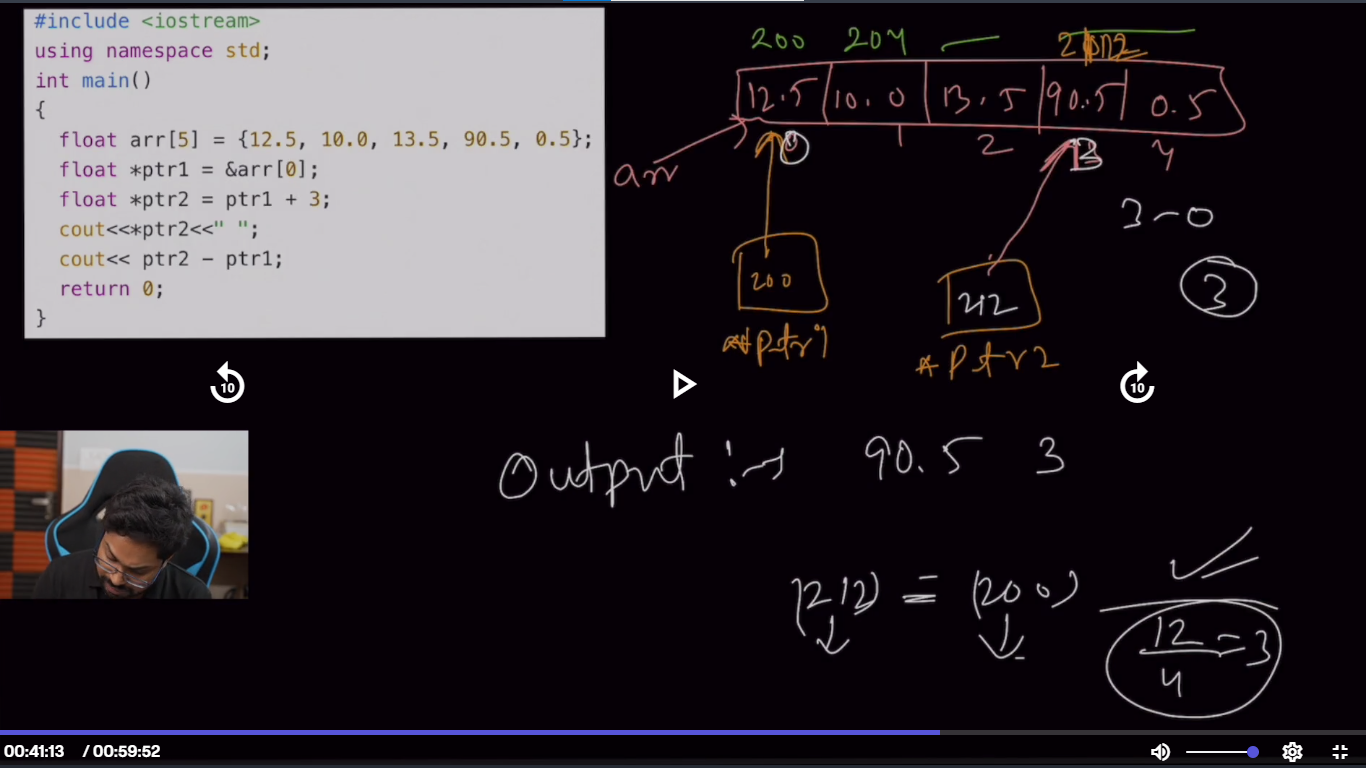 #include <iostream>
using namespace std;
int main()
{
float arr[5] = {12.5, 10.0, 13.5, 90.5, 0.5};
float *ptr1 = &arr[0];
float *ptr2 = ptr1 + 3;
cout<<*ptr2<<" ";
cout<< ptr2 - ptr1;
return 0;
}
200 204
12.5 10.0 13.5 90.5 0.5
0 1 2 3 4
arr
3-0
200
212
3
*ptr1
*ptr2
10
10
Output :→ 90.5 3
(212) = (200)
12
= 3
4
00:41:13 / 00:59:52